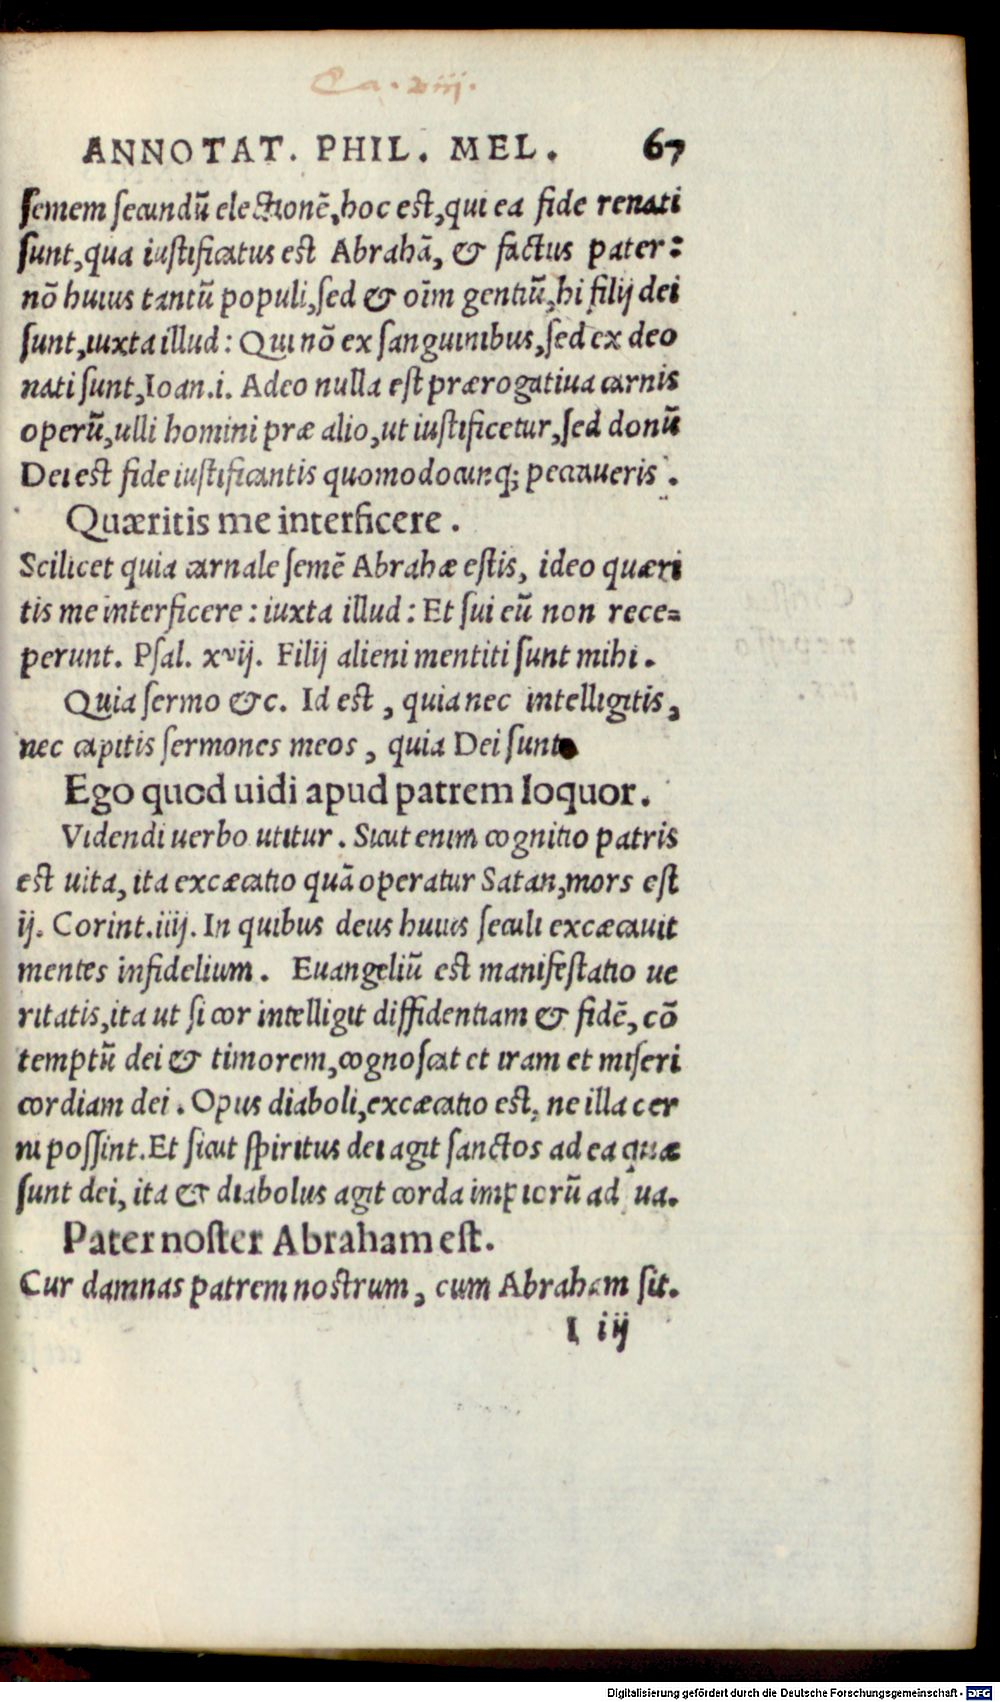 Ca. viij.
ANNOTAT. PHIL. MEL. 67
ſemem ſecundū electionē, hoc est, qui ea fide renati
ſunt, qua iuſtificatus est Abrahā, & factus pater:
nō huius tantū populi, ſed & oīm gentiū, hi filij dei
ſunt, iuxta illud: Qui nō ex ſanguinibus, ſed ex deo
nati ſunt, Ioan. i. Adeo nulla est prærogatiua carnis
operū, ulli homini præ alio, ut iuſtificetur, ſed donū
Dei est fide iuſtificantis quomodocunq; peccaueris.
Quæritis me interficere.
Scilicet quia carnale ſemē Abrahæ eſtis, ideo quæri
tis me interficere: iuxta illud: Et ſui eū non rece=
perunt. Pſal. xvij. Filij alieni mentiti ſunt mihi.
Quia ſermo &c. Id est, quia nec intelligitis,
nec capitis ſermones meos, quia Dei ſunt
Ego quod uidi apud patrem loquor.
Videndi uerbo utitur. Sicut enim cognitio patris
est uita, ita excæcatio quā operatur Satan, mors est
ij. Corint. iiij. In quibus deus huius ſeculi excæcauit
mentes infidelium. Euangeliū est manifeſtatio ue
ritatis, ita ut ſi cor intelligit diffidentiam & fidē, cō
temptū dei & timorem, cognoſcat et iram et miſeri
cordiam dei. Opus diaboli, excæcatio est, ne illa cer
ni poſſint. Et ſicut ſpiritus dei agit ſanctos ad ea quæ
ſunt dei, ita & diabolus agit corda impiorū ad ua.
Pater noſter Abraham eſt.
Cur damnas patrem nostrum, cum Abraham ſit.
I iij
Digitalisierung gefördert durch die Deutsche Forschungsgemeinschaft - DFG